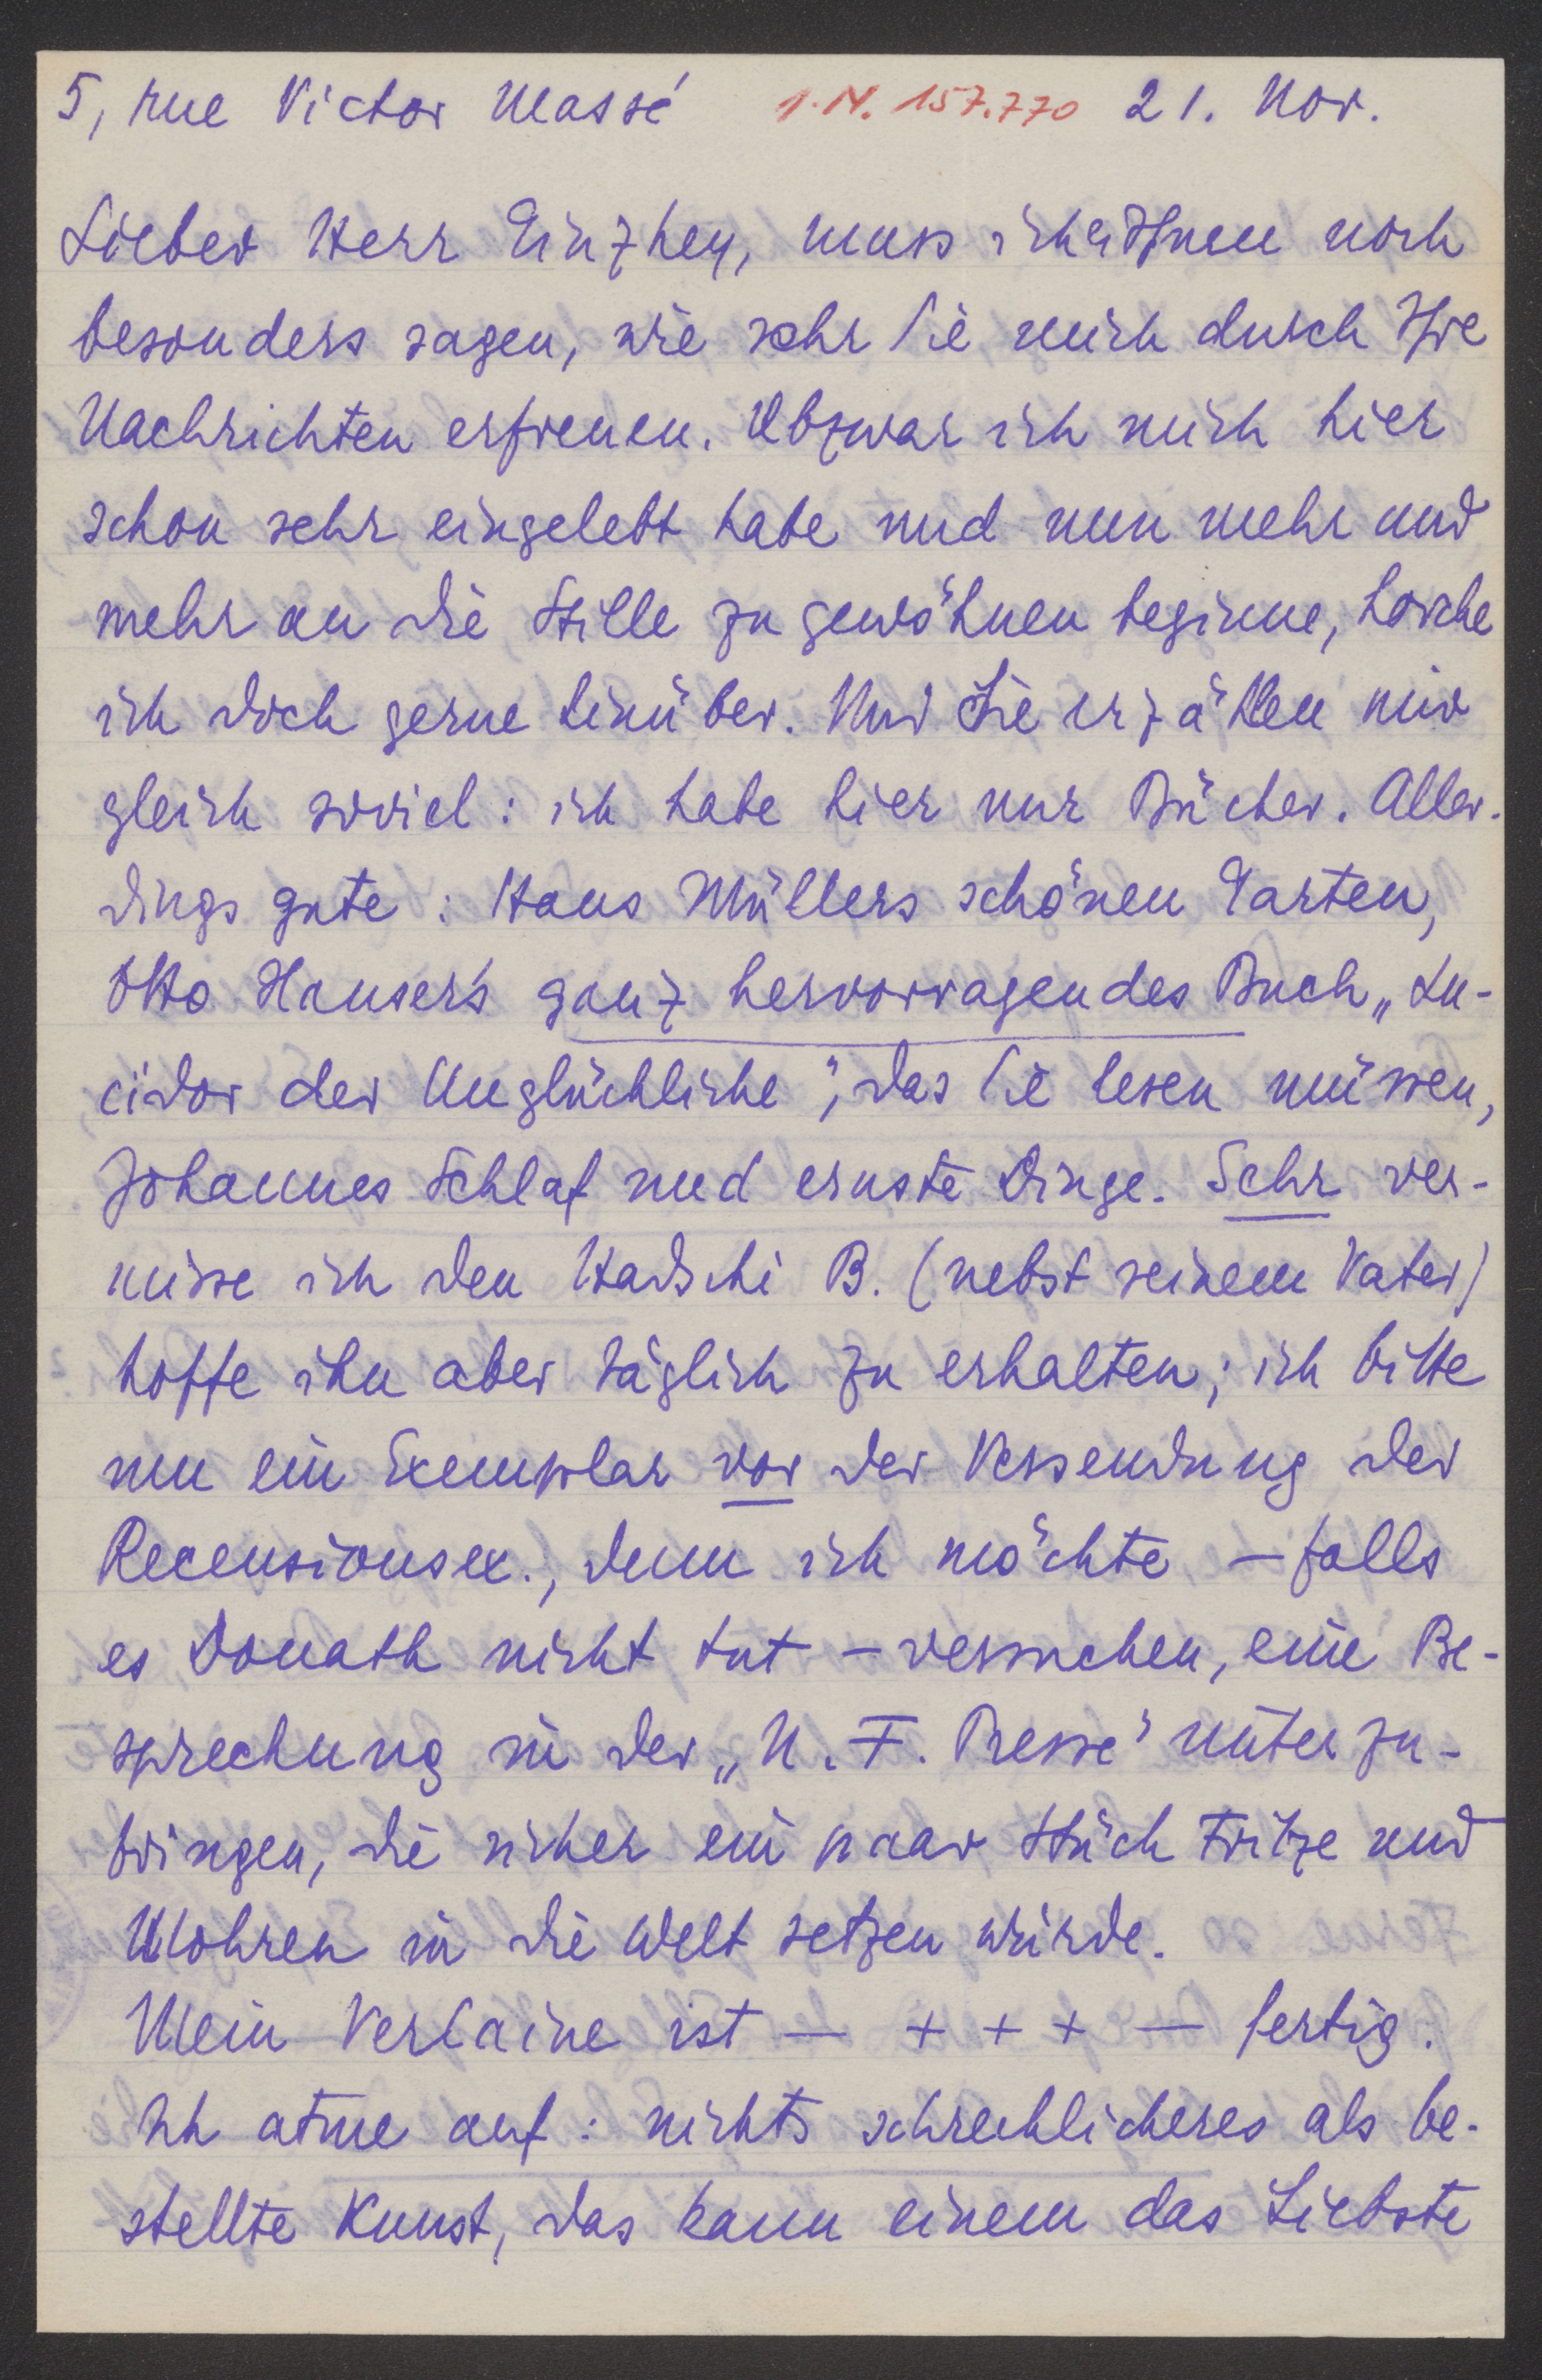 5, rue Victor Massé I.N. 157.770 21. Nov.
Lieber Herr Ginzkey, muss ich es Ihnen noch
besonders sagen, wie sehr Sie mich durch Ihre
Nachrichten erfreuen. Obzwar ich mich hier
schon sehr eingelebt habe und nun mehr und
mehr an die Stille zu gewöhnen beginne, horche
ich doch gerne hinüber. Und Sie erzählen mir
gleich soviel: ich habe hier nur Bücher. Aller-
dings gute: Hans Müllers schönen Garten,
Otto Hauser's ganz hervorragendes Buch „Lu-
cidor der Unglückliche", das Sie lesen müssen,
Johannes Schlaf und ernste Dinge. Sehr ver-
misse ich den Hadschi B. (nebst seinem Vater)
hoffe ihn aber täglich zu erhalten; ich bitte
um ein Exemplar vor der Versendung der
Recensionsex., denn ich möchte – falls
es Donath nicht tut – versuchen, eine Be-
sprechung in der „N. F. Presse" unterzu-
bringen, die sicher ein paar Stück Fritze und
Mohren in die Welt setzen würde.
Mein Verlaine ist — + + + — fertig.
Ich atme auf: nichts schrecklicheres als be-
stellte Kunst, das kann einem das Liebste